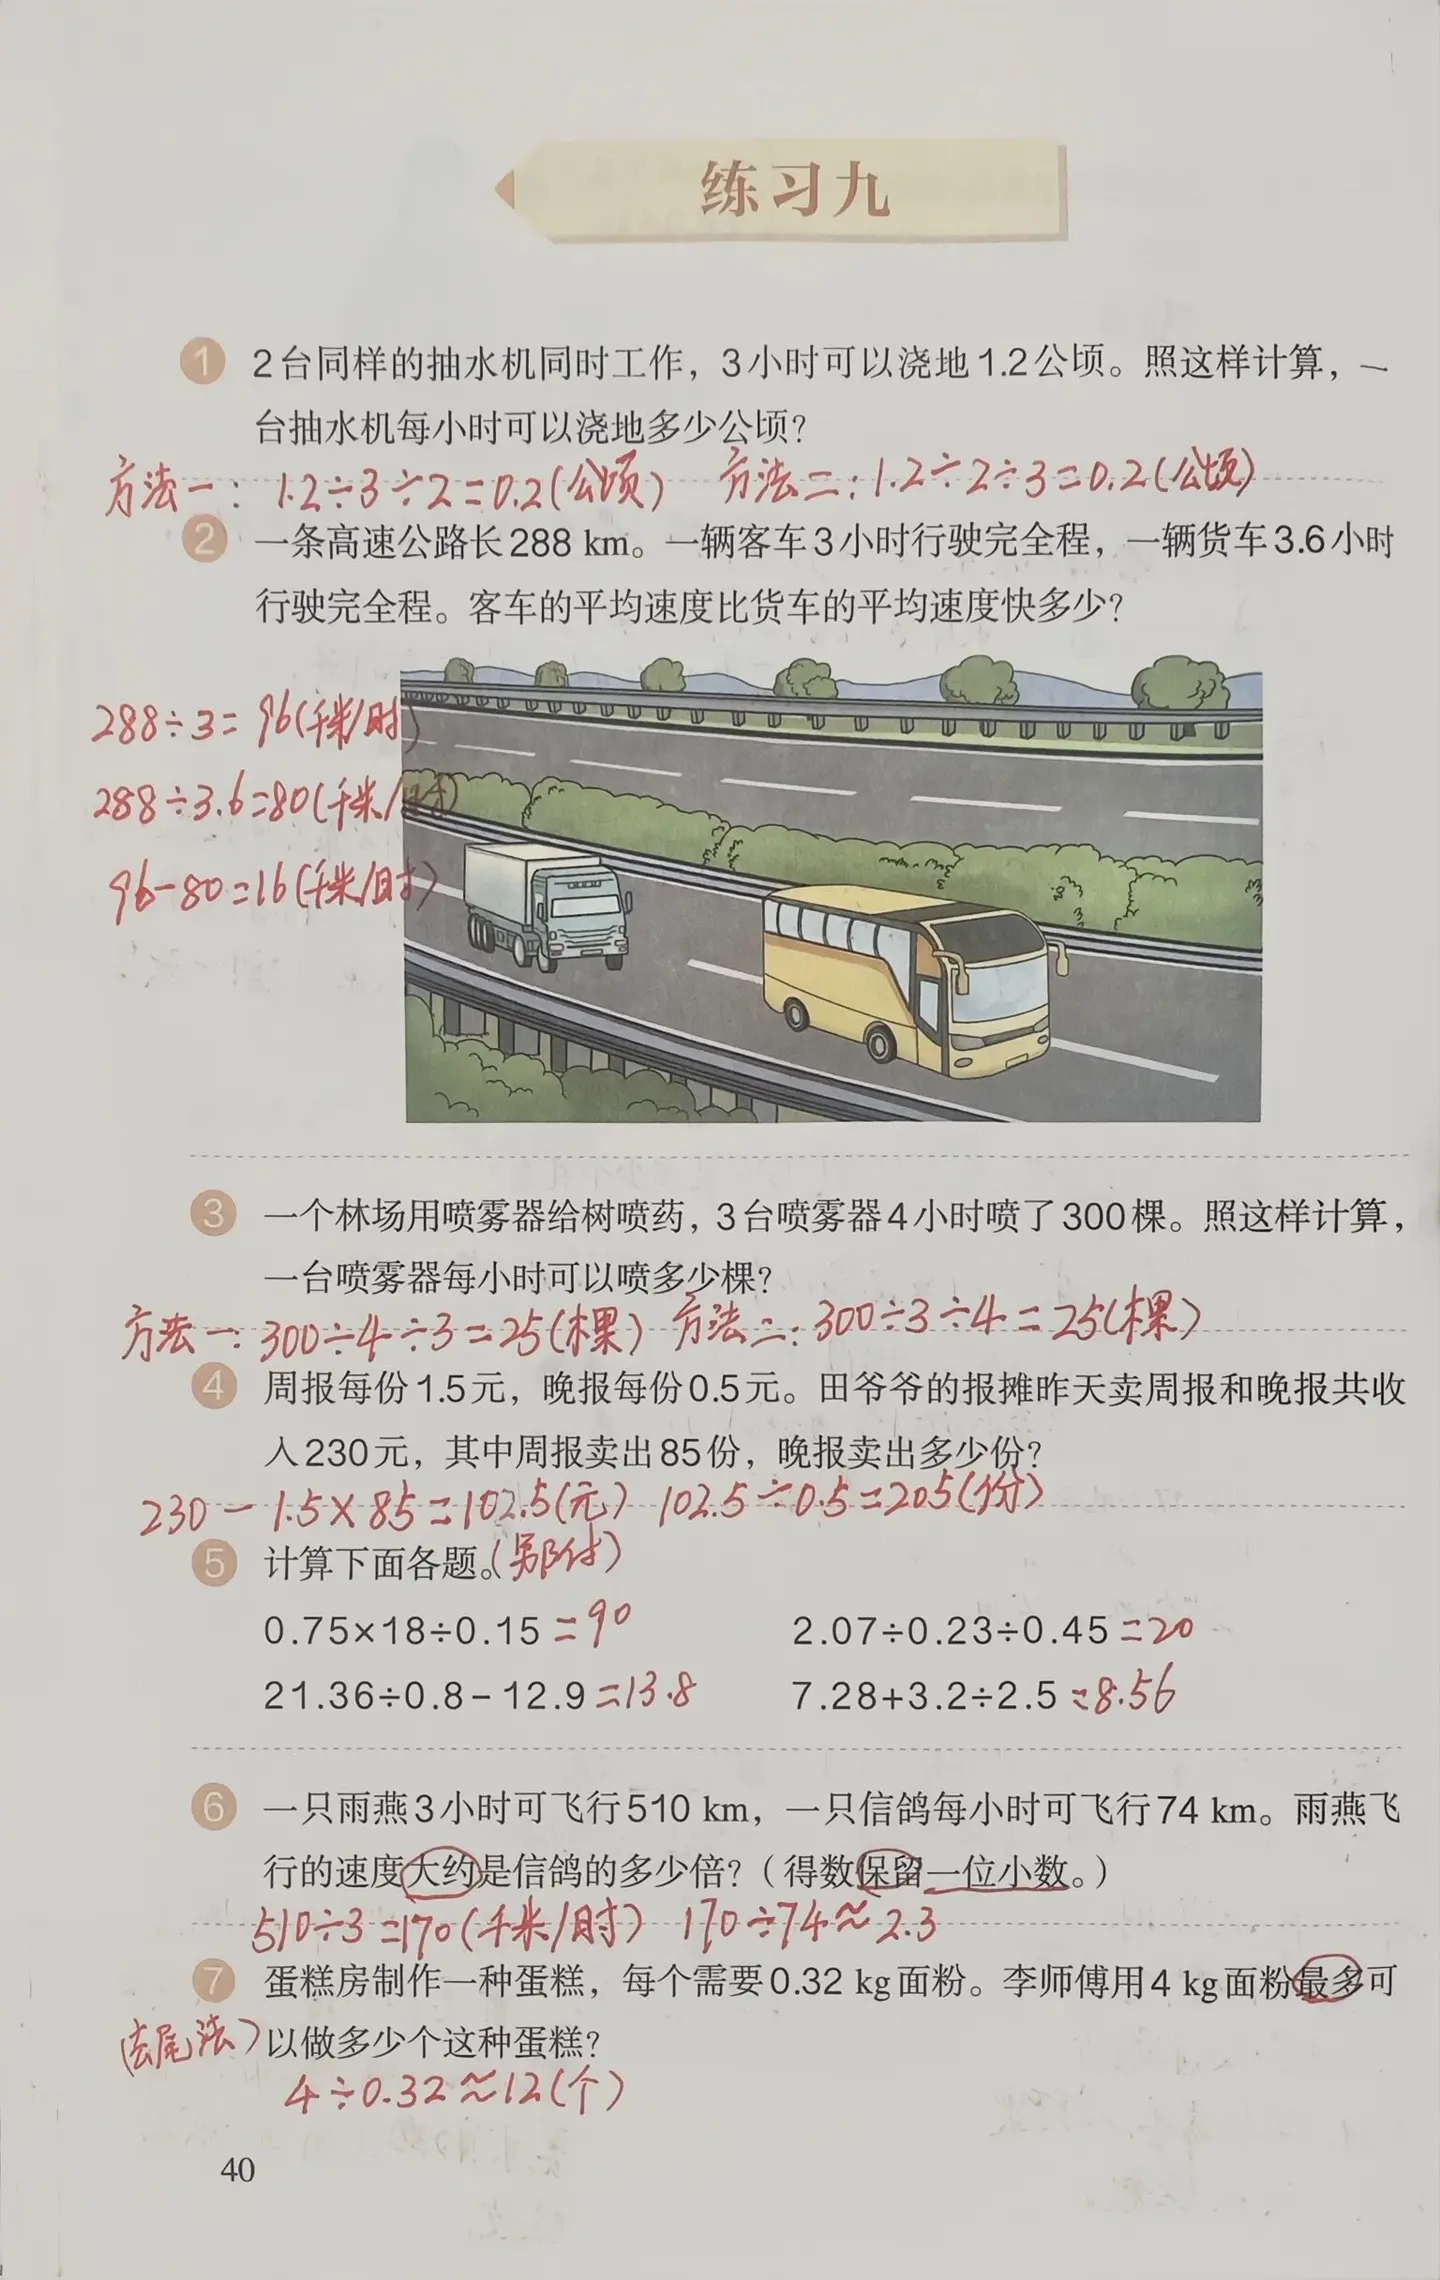 练习九
1 2台同样的抽水机同时工作，3小时可以浇地1.2公顷。照这样计算，一
台抽水机每小时可以浇地多少公顷？
方法一：1.2÷3÷2=0.2(公顷) 方法二：1.2÷2÷3=0.2(公顷)
2 一条高速公路长288 km。一辆客车3小时行驶完全程，一辆货车3.6小时
行驶完全程。客车的平均速度比货车的平均速度快多少？
288÷3=96(千米/时)
288÷3.6=80(千米/时)
96-80=16(千米/时)
3 一个林场用喷雾器给树喷药，3台喷雾器4小时喷了300棵。照这样计算，
一台喷雾器每小时可以喷多少棵？
方法一：300÷4÷3=25(棵) 方法二：300÷3÷4=25(棵)
4 周报每份1.5元，晚报每份0.5元。田爷爷的报摊昨天卖周报和晚报共收
入230元，其中周报卖出85份，晚报卖出多少份？
230-1.5×85=102.5(元) 102.5÷0.5=205(份)
5 计算下面各题。(另附)
0.75×18÷0.15=90 2.07÷0.23÷0.45=20
21.36÷0.8-12.9=13.8 7.28+3.2÷2.5=8.56
6 一只雨燕3小时可飞行510 km，一只信鸽每小时可飞行74 km。雨燕飞
行的速度大约是信鸽的多少倍？（得数保留一位小数。）
510÷3=170(千米/时) 170÷74≈2.3
7 蛋糕房制作一种蛋糕，每个需要0.32 kg面粉。李师傅用4 kg面粉最多可
(去尾法) 以做多少个这种蛋糕？
4÷0.32≈12(个)
40